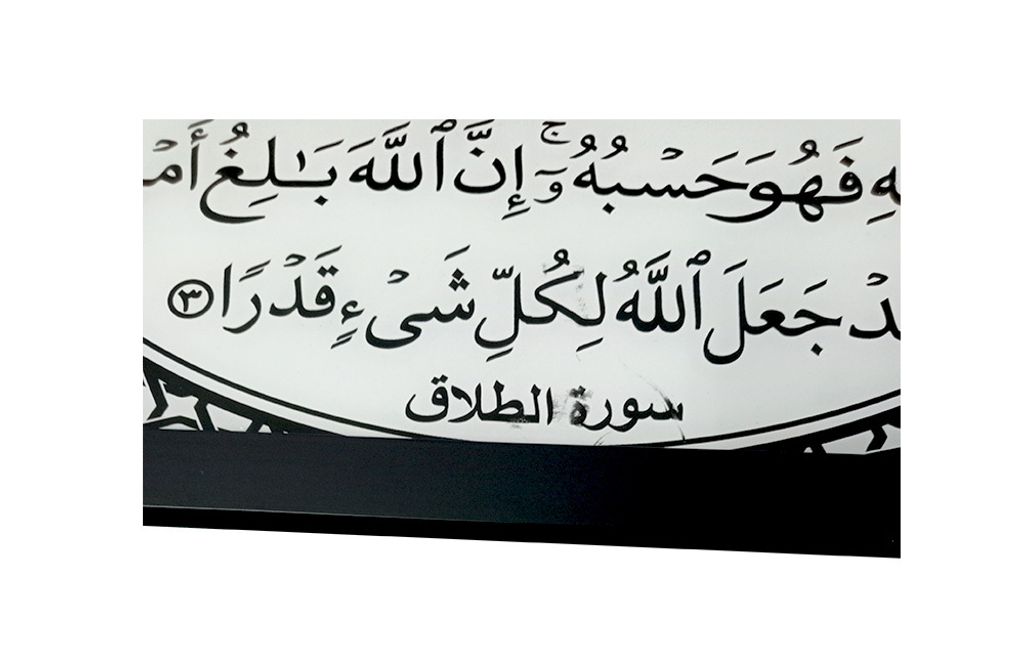 ـهِ فَهُوَ حَسْبُهُۥٓ ۚ إِنَّ ٱللَّهَ بَـٰلِغُ أَمْـ
ـدْ جَعَلَ ٱللَّهُ لِكُلِّ شَىْءٍ قَدْرًا ٣
سورة الطلاق